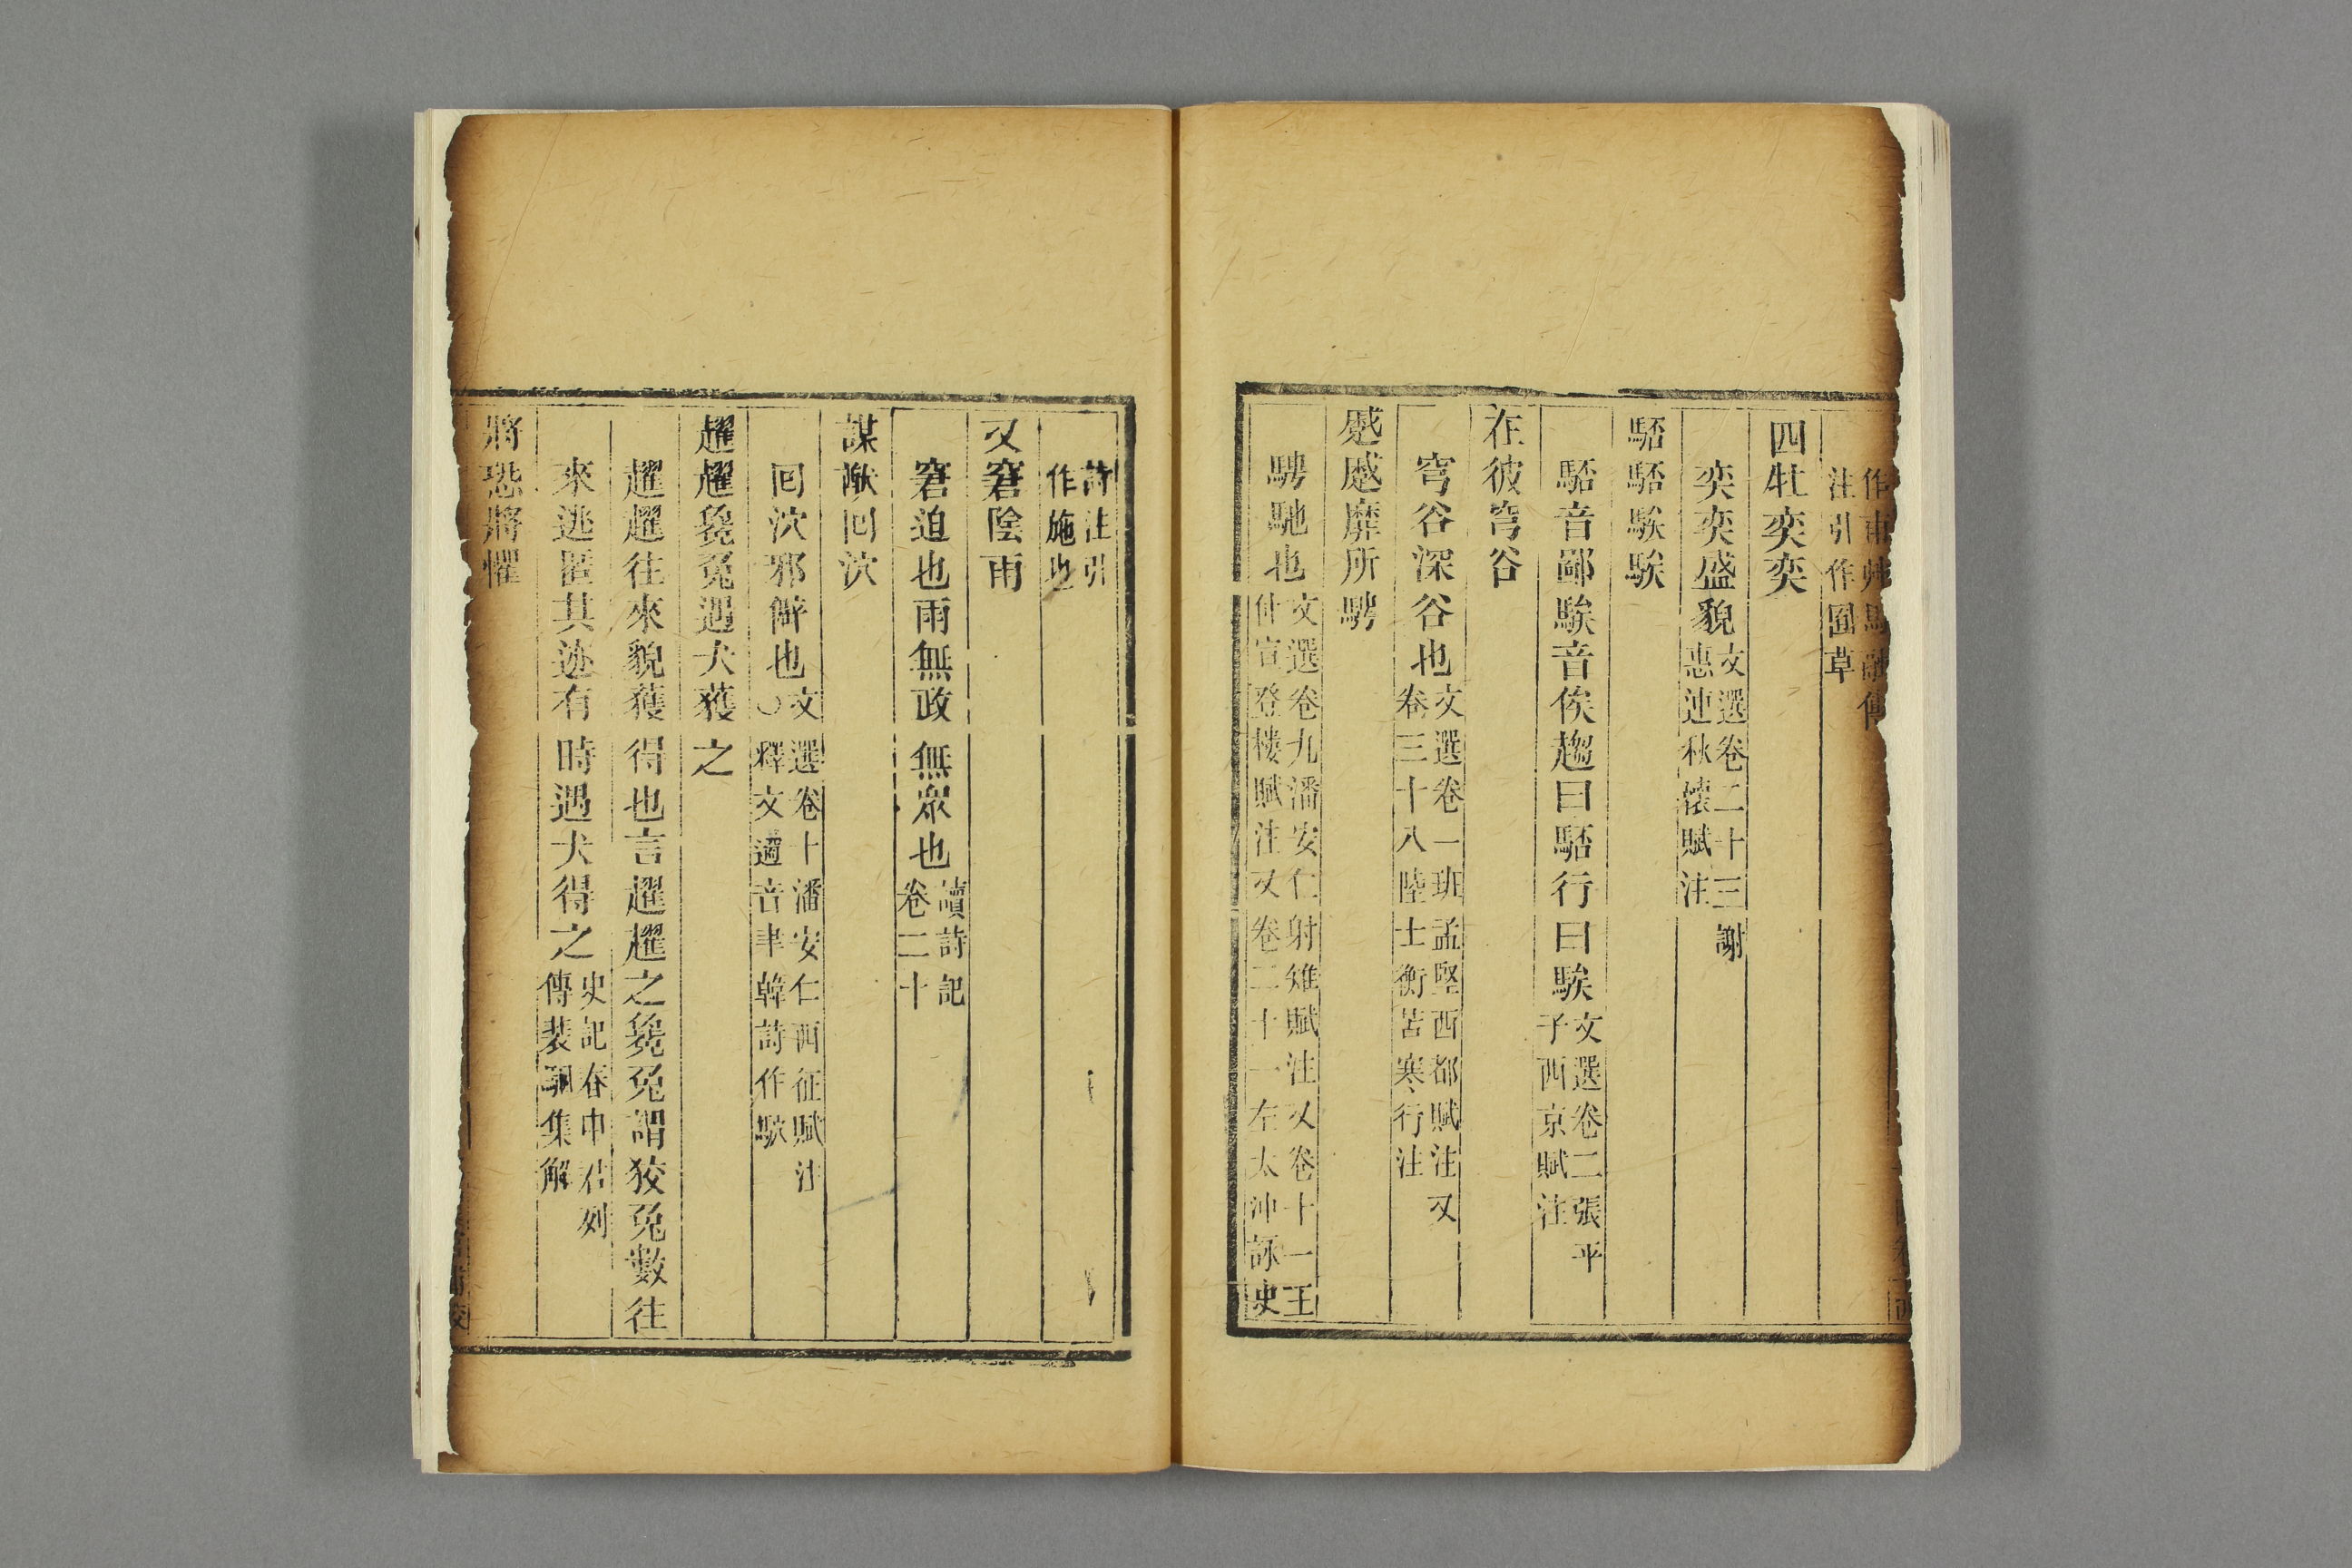 作甫艸馬融傳
注引作圃草
四牡奕奕
奕奕盛貌文選卷二十三謝
惠連秋懷賦注
駓駓騃騃
駓音鄙騃音俟趨曰駓行曰騃文選卷二張平
子西京賦注
在彼穹谷
穹谷深谷也文選卷一班孟堅西都賦注又
卷三十八陸士衡苦寒行注
蹙蹙靡所騁
騁馳也文選卷九潘安仁射雉賦注又卷十一王
仲宣登樓賦注又卷二十一左太沖詠史
詩注引
作施也
又窘陰雨
窘迫也雨無政無眾也讀詩記
卷二十
謀猷回泬
回泬邪僻也文選卷十潘安仁西征賦注
○釋文遹音聿韓詩作鴥
趯趯毚兔遇犬獲之
趯趯往來貌獲得也言趯趯之毚兔謂狡兔數往
來逃匿其迹有時遇犬得之史記春申君列
傳裴駰集解
將恐將懼